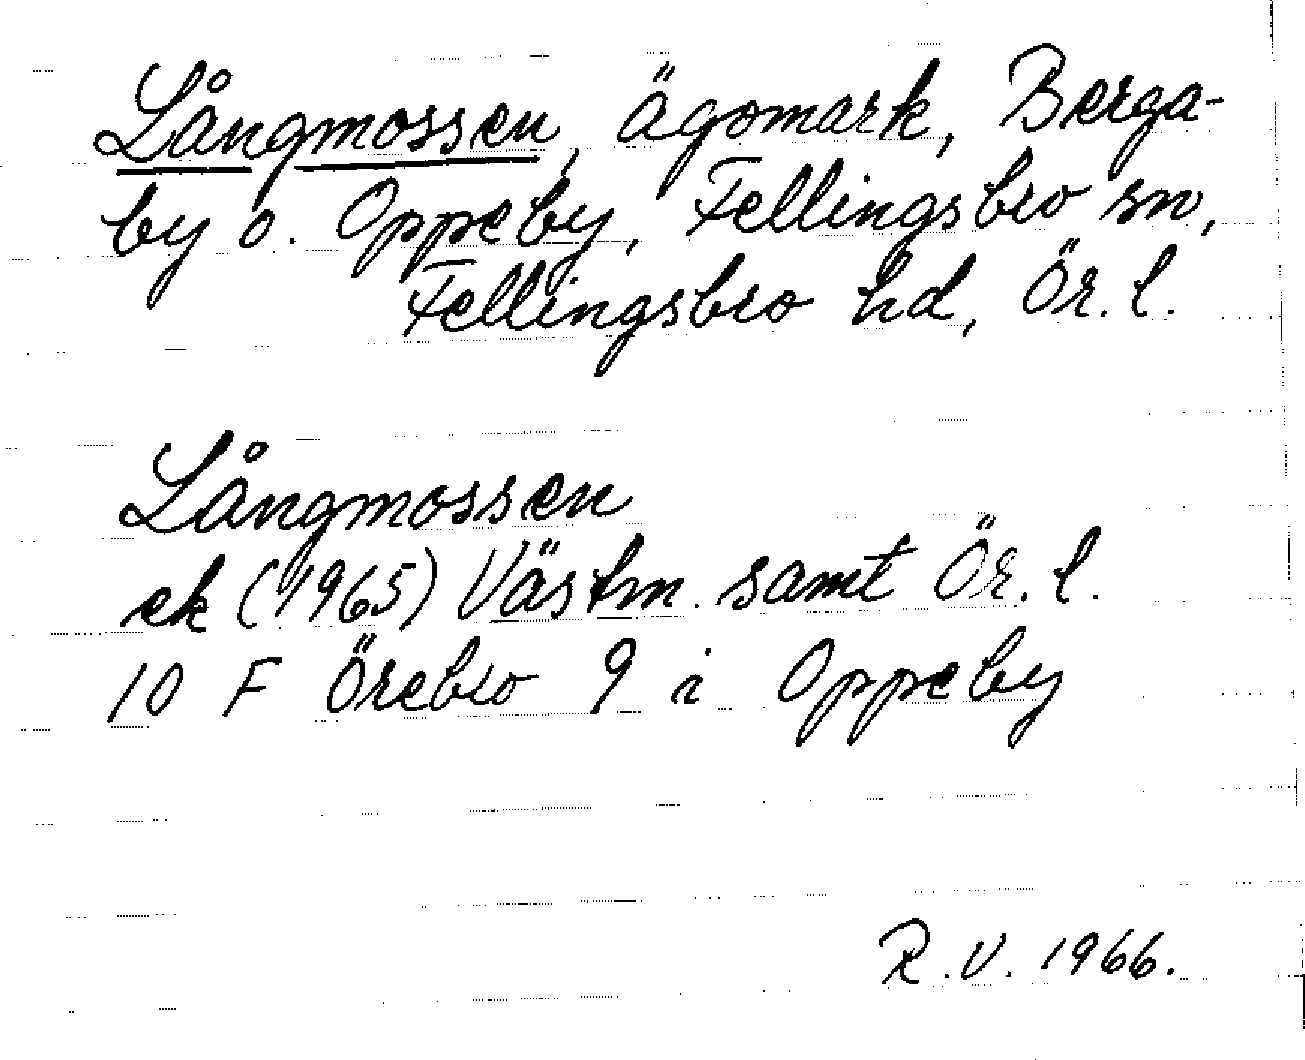 Långmossen, ägomark, Berga-
by o. Oppeby, Fellingsbro sn,
Fellingsbro hd, Ör. l.
Långmossen
ek (1965) Västm. samt Ör. l.
10 F Örebro 9 i Oppeby
R.V. 1966.